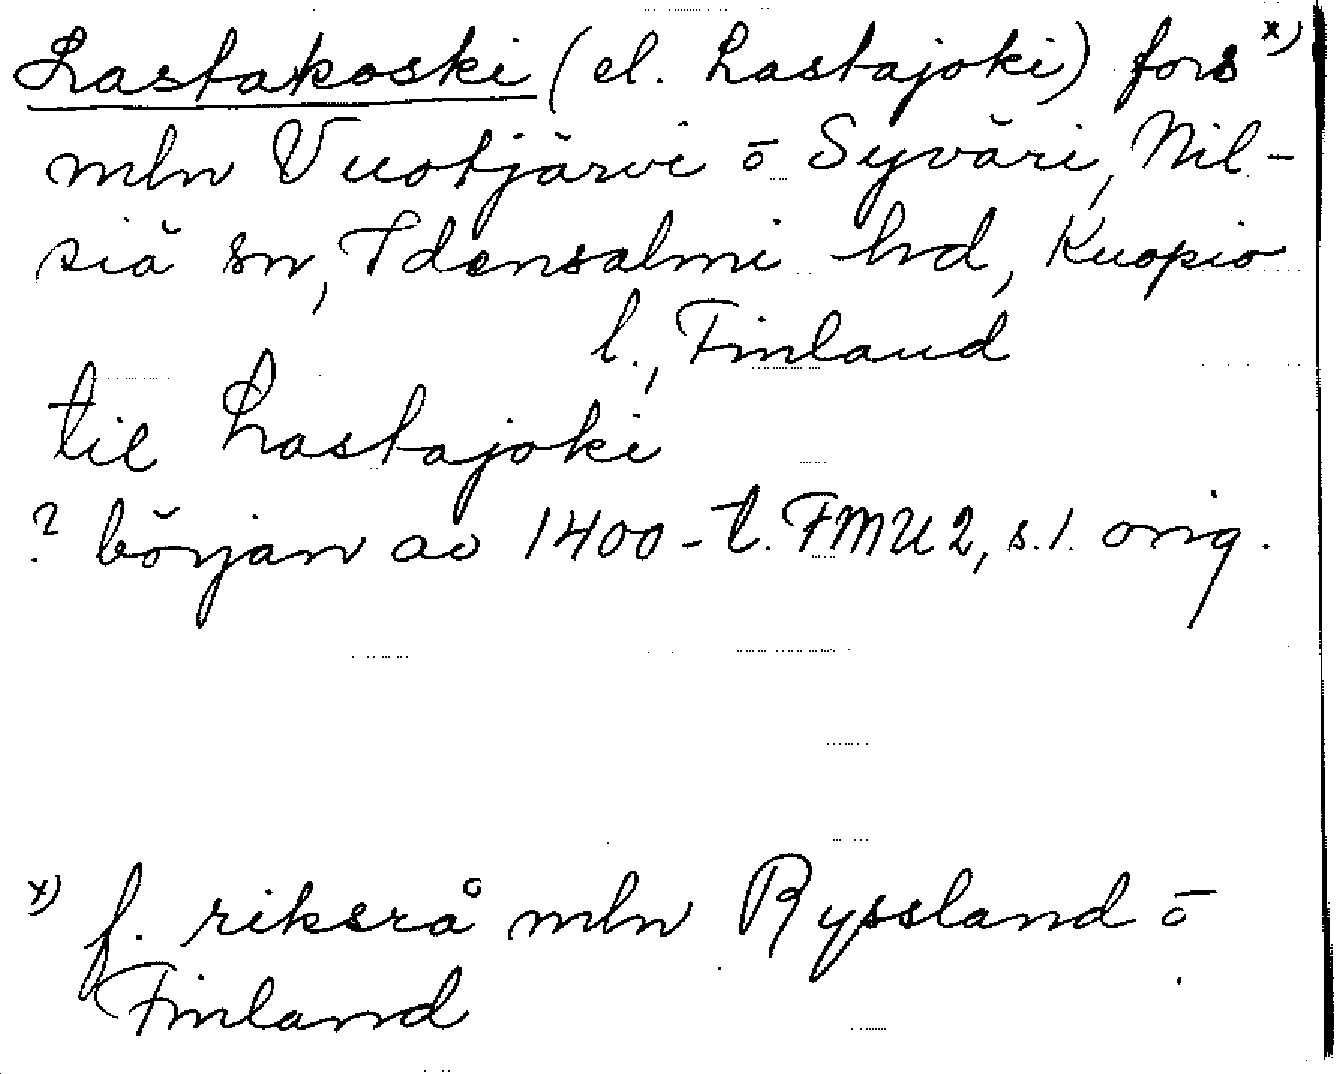 Lastakoski (el. Lastajoki) fors x)
mln Vuotjärvi o Syväri, Nil-
siä sn, Idensalmi hd, Kuopio
l., Finland
til Lastajoki
? början av 1400-t. FMU 2, s. 1. orig.
x) f. riksrå mln Ryssland o
Finland